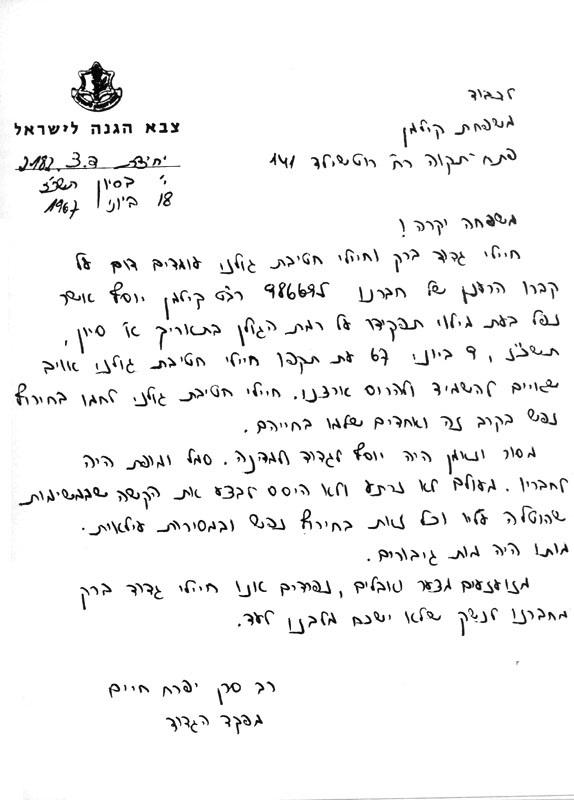 לכבוד
משפחת קילמן
פתח-תקוה רח' רוטשילד 141
צבא הגנה לישראל
יחידת ד.צ. 2182
י' בסיון תשכ"ז
18 ביוני 1967
משפחה יקרה!
חיילי גדוד ברק וחיילי חטיבת גולני עומדים דום על
קברו הרענן של חברנו 986695 רב"ט קילמן יוסף אשר
נפל בעת מילוי תפקידו על רמת הגולן בתאריך א' סיון,
תשכ"ז, 9 ביוני 67 עת תקפו חיילי חטיבת גולני אויב
שאיים להשמיד ולהרוס ארצנו. חיילי חטיבת גולני לחמו בחירוף
נפש בקרב זה ואחדים שלמו בחייהם.
מסור ונאמן היה יוסף לגדוד ולמדינה. סמל ומופת היה
לחבריו. מעולם לא נרתע ולא היסס לבצע את הקשה שבמשימות
שהוטלה עליו וכל זאת בחירוף נפש ובמסירות עילאית.
מותו היה מות גיבורים.
מזועזעים מצער וסובלים, נפרדים אנו חיילי גדוד ברק
מחברנו לנשק שלא ישכח מלבנו לעד.
רב סרן יפרח חיים
מפקד הגדוד